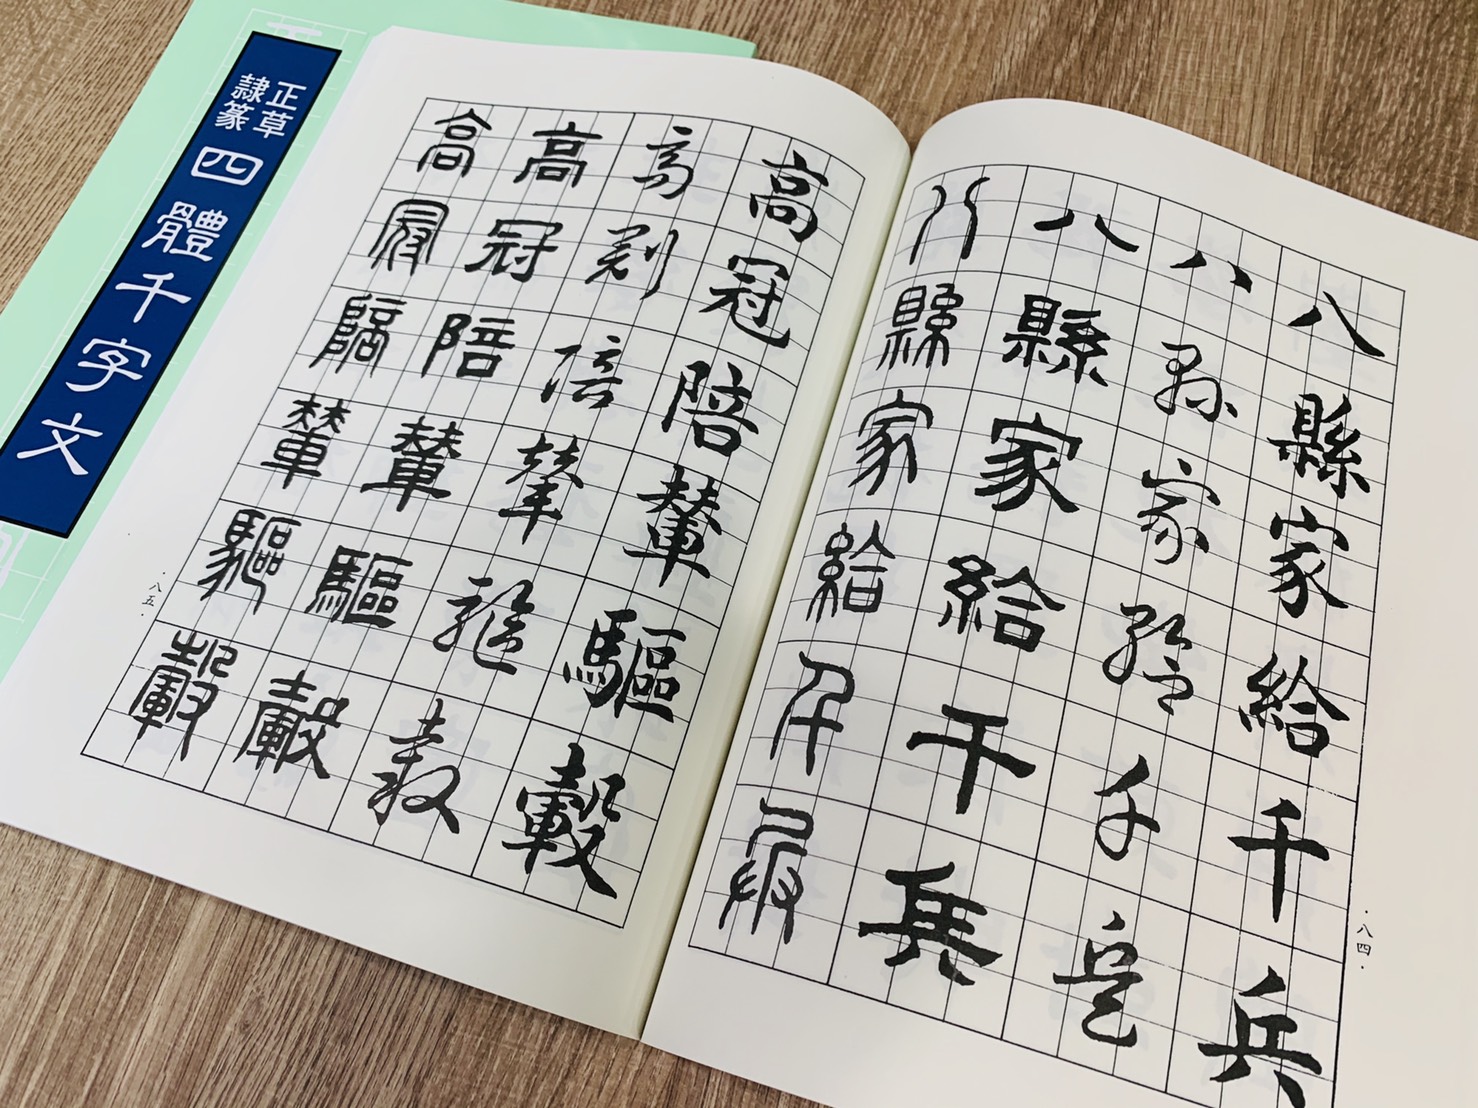 正草
隷篆
四體千字文
八縣家給千兵
八縣家給千兵
八縣家給千兵
八縣家給千兵
·八四·
高冠陪輦驅轂
高冠陪輦驅轂
高冠陪輦驅轂
高冠陪輦驅轂
·八五·